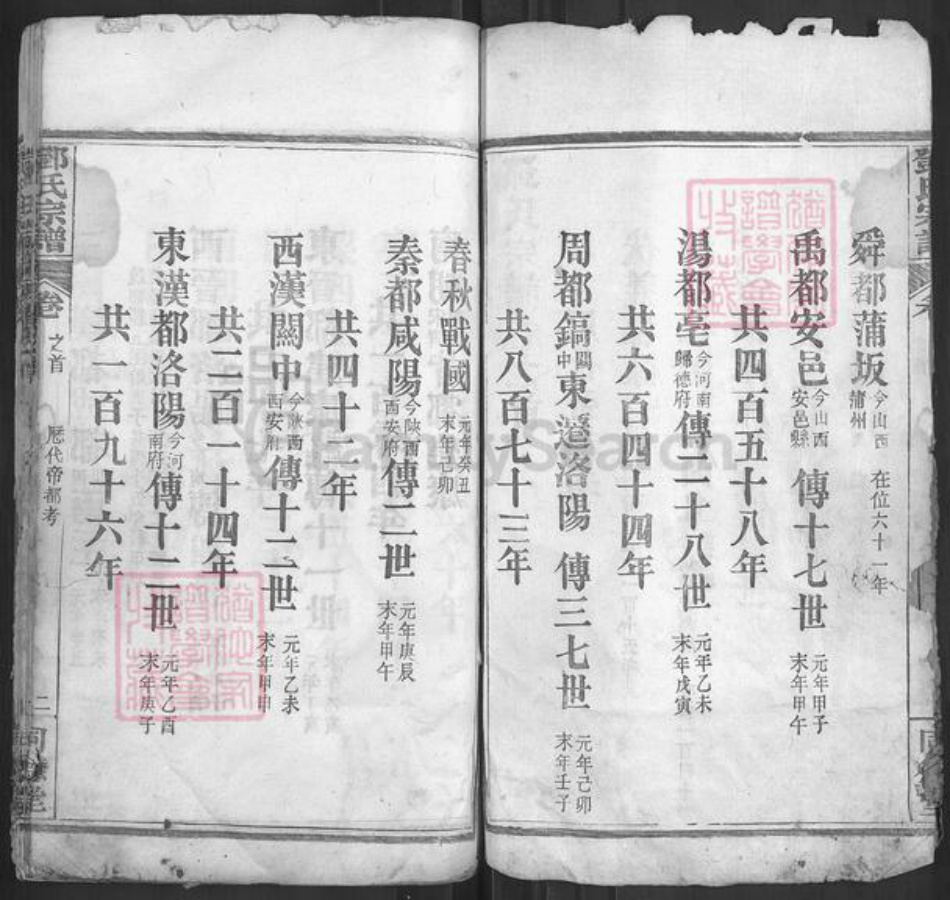 舜都蒲坂今山西蒲州 在位六十一年
禹都安邑今山西安邑縣 傳十七世元年甲子末年甲午
共四百五十八年
湯都亳今河南歸德府傳二十八世元年乙未末年戊寅
共六百四十四年
周都鎬關中東遷洛陽 傳三七世元年己卯末年壬子
共八百七十三年
春秋戰國元年癸丑末年己卯
秦都咸陽今陝西西安府傳二世元年庚辰末年甲午
共四十二年
西漢關中今陝西西安府傳十二世元年乙未末年甲申
共二百一十四年
東漢都洛陽今河南府傳十二世元年乙酉末年庚子
共一百九十六年
鄧氏宗譜 卷之首 歷代帝都考 二
FamilySearch